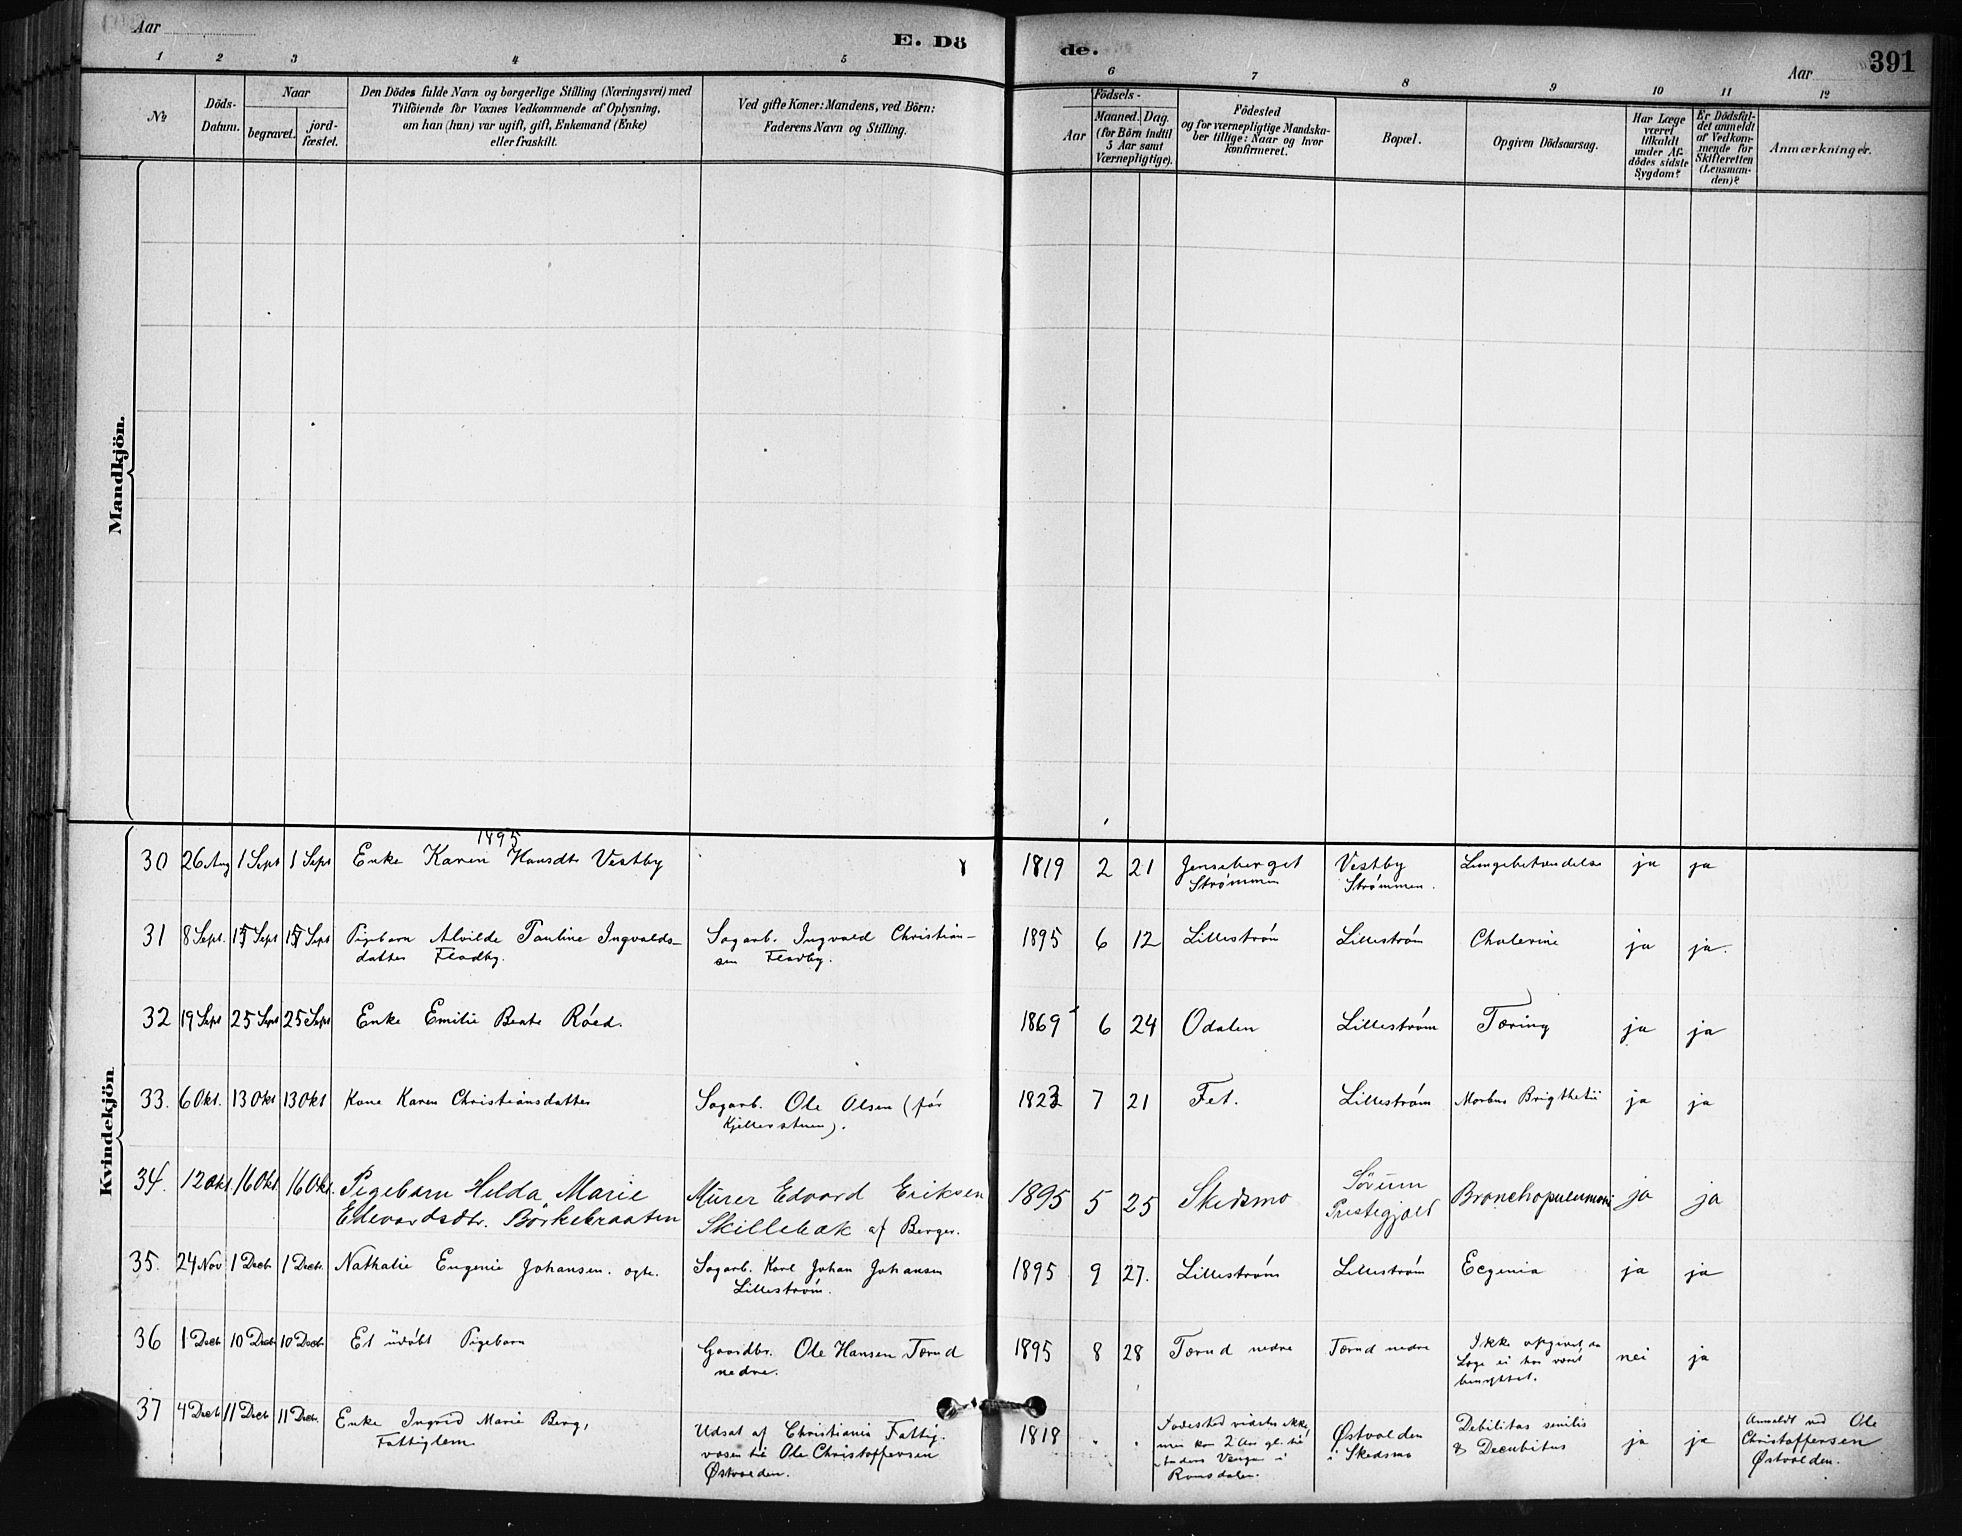 Aar
E. Dö
de.
Aar
391
1 2 3 4 5 6 7 8 9 10 11 12
№
Döds-
Datum.
Naar
begravet.
jord-
fæstet.
Den Dödes fulde Navn og borgerlige Stilling (Næringsvei) med
Tilföiende for Voxnes Vedkommende af Oplysning,
om han (hun) var ugift, gift, Enkemand (Enke)
eller fraskilt.
Ved gifte Koner: Mandens, ved Börn:
Faderens Navn og Stilling.
Födsels-
Aar
Maaned. Dag.
(for Börn indtil
5 Aar samt
Værnepligtige).
Födested
og for værnepligtige Mandska-
ber tillige: Naar og hvor
konfirmeret.
Bopæl.
Opgiven Dödsaarsag.
Har Læge
været
tilkaldt
under Af-
dödes sidste
Sygdom?
Er Dödsfal-
det anmeldt
af Vedkom-
mende for
Skifteretten
(Lensman-
den)?
Anmærkninger.
Mandkjön.
Kvindekjön
1895
30 26 Aug 1 Sept 1 Sept Enke Karen Hansdtr Vestby 1819 2 21 Jenseberget Vestby Lungebetændelse ja ja
Strømmen Strømmen.
31 8 Sept. 15 Sept 15 Sept Pigebarn Alvilde Pauline Ingvalds- Sagarb. Ingvald Christian- 1895 6 12 Lillestrøm Lillestrøm Cholerine ja ja.
datter Fladby. sen Fladby.
32 19 Sept 25 Sept 25 Sept Enke Emilie Beate Róed. 1869 6 24 Odalen Lillestrøm Tæring ja ja
33. 6 Okt. 13 Okt 13 Okt Kone Karen Christiansdatter Sagarb. Ole Olsen (før 1823 7 21 Fet. Lillestrøm Morbus Brigthetii ja ja
Kjellerstuen).
34. 12 Okt 16 Okt 16 Okt. Pigebarn Helda Marie Murer Edvard Eriksen 1895 5 25 Skedsmo Sørum Bronchopneumoni ja ja
Edevardsdtr. Börkebraaten Skillebæk af Berger. Prestegjæld
35. 24 Nov 1 Decb 1 Decb. Nathalie Eugenie Johansen. ægte. Sagarb. Karl Johan Johansen 1895 9 27. Lillestrøm Lillestrøm Ecgenia ja ja
Lillestrøm.
36 1 Decb 10 Decb 10 Decb. Et udøbt Pigebarn Gaardbr. Ole Hansen Tærud 1895 8 28 Tærud nedre Tærud nedre Ikke opgivet, da nei ja
nedre. Læge ei har været
benyttet.
37 4 Decb 11 Decb 11 Decb. Enke Ingrid Marie Berg, Udsat af Christiania Fattig- 1818 Fødested vidstes ikke, Østvolden Debilitas senilis ja ja Anmeldt ved Ole
Fattiglem væsen til Ole Christoffersen men kom 2 Aar gl. til i Skedsmo & Decubitus Christoffersen
Østvolden. i Romsdalen. Østvolden.